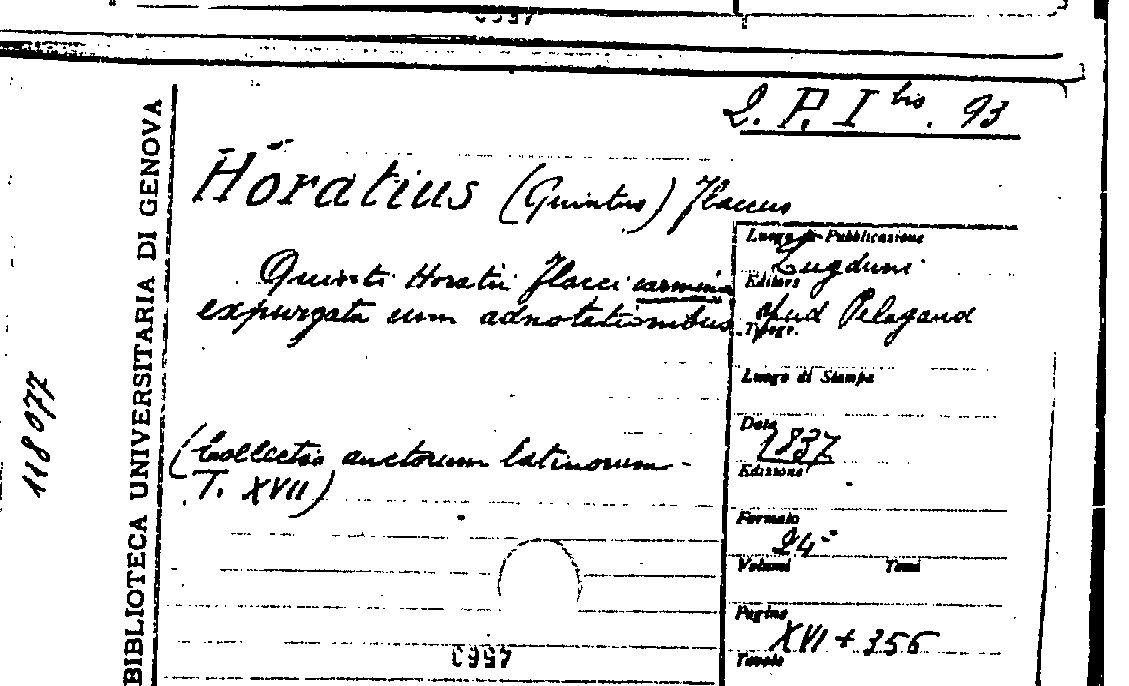 2. P. I bis. 93
BIBLIOTECA UNIVERSITARIA DI GENOVA
118077
Horatius (Quintus) Flaccus
Quinti Horatii Flacci carmina
expurgata cum adnotationibus
(Collectio auctorum latinorum -
T. XVII)
Luogo di Pubblicazione
Lugduni
Editore
apud Pelagaud
Tipogr.
Luogo di Stampa
Data
1837
Edizione
Formato
24°
Volumi Tomi
Pagine
XVI + 356
Tavole